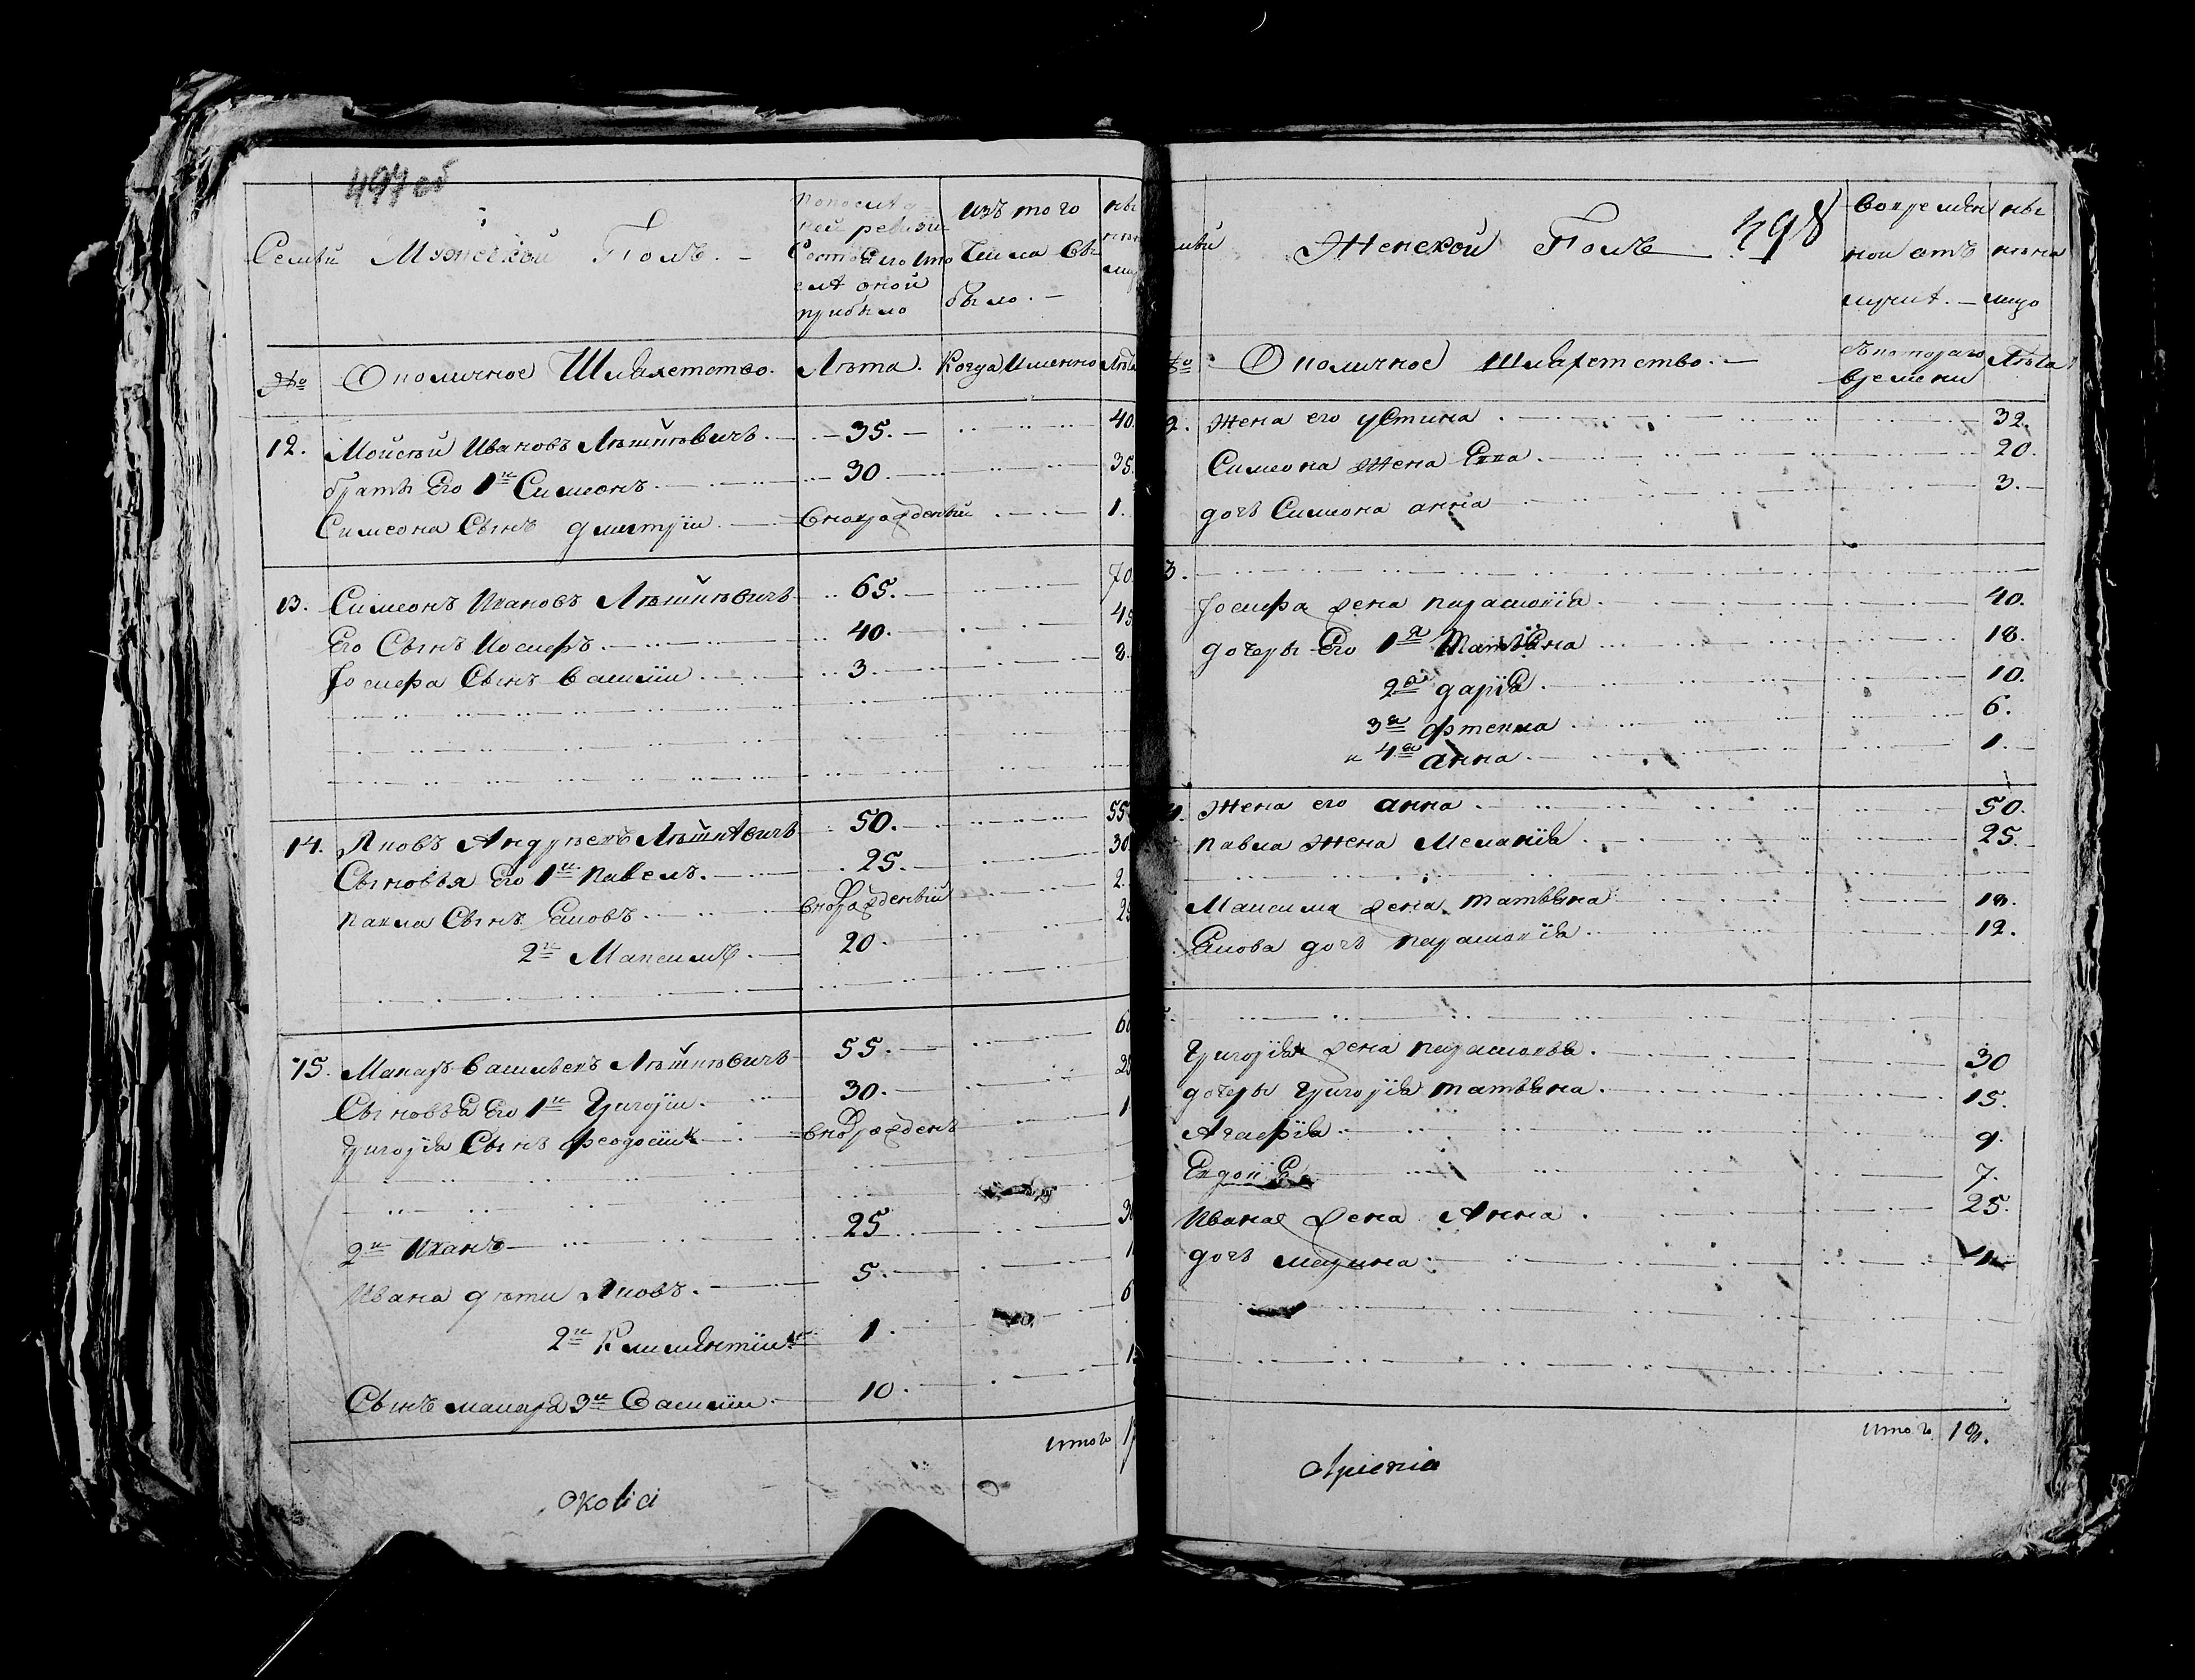 497 об
Семьи Мужескои Полъ. –
По послѣд
ней ревизіи
Состояло ито
слѣ оной
прибыло
изъ того
Числа Вы
было. –
ны
нѣ
лицо
№ Околичное Шляхетство. Лѣта. Когда Именно Лѣта
12. Мойсѣй Ивановъ Лѣшкѣвичъ. 35. 40.
братъ Его 1й Симеонъ. 30. 35.
Симеона Сынъ дмитрій. вновророжденый 1.
13. Симеонъ Ивановъ Лѣшкѣвичъ 65. 70.
Его Сынъ Иосифъ. 40. 45
Іосифа Сынъ Василій 3. 8.
14. Яковъ Андрѣевъ Лѣшкѣвичъ 50. 55
Сыновья Его 1й Павелъ. 25. 30.
Павла Сынъ Яковъ. вноророжденый 2.
2й Максимъ. 20. 25
15. Макаръ Васильевъ Лѣшкѣвичъ 55. 60
Сыновья Его 1й Григорій. 30. 35
Григорія Сынъ Феодосій вноророжденъ 1
2й Иванъ 25 30
Ивана дѣти Яковъ. 5. 1
2й Климентій 1. 6
Сынъ макара 3й Василій. 10. 1
итого 1
Okolici
498
мьи Женской Полъ
Вовремен
ной отъ
лучкѣ. –
ны
нѣ на
лицо
№ Околичное Шляхетство. –
съ котораго
времени
Лѣта
2. Жена его устина 32.
Симеона Жена Ева. 20.
дочъ Симеона анна 3.
3.
Іосифа жена парасковія. 40.
дочеры Его 1я Татьяна 18.
2я дарія. 10.
3я Фтекла 6.
и 4я анна. 1.
4. Жена его анна. 50.
Павла Жена Меланія. 25.
Максима жена Татьяна 18.
Якова дочъ парасковія. 12.
Григорія жена парасковья. 30
дочеры Григорія татьяна. 15.
Агафія. 9.
Евдокія 7.
Ивана жена Анна. 25.
дочъ марина. 1
итого 18.
Opienia